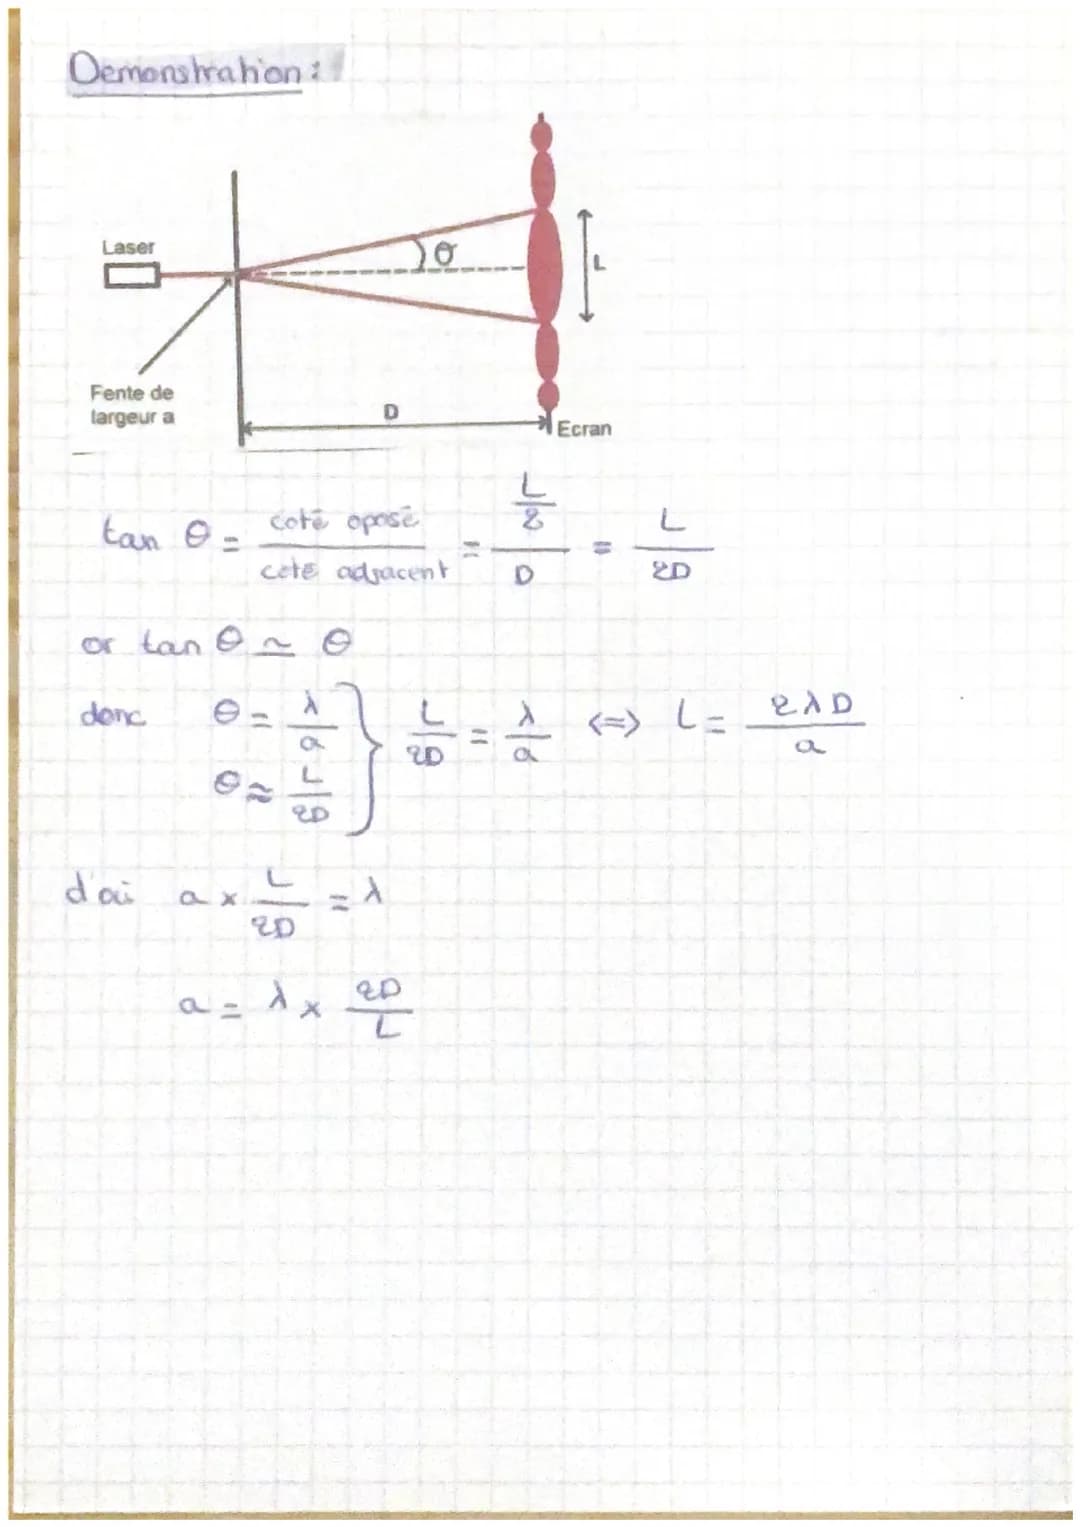 Demonstration :
Laser
θ
L
Fente de
largeur a
D
Ecran
tan θ = coté oposé / coté adjacent = (L/2) / D = L / 2D
or tan θ ≃ θ
donc θ = λ/a } L/2D = λ/a <=> L = 2λD / a
θ ≈ L/2D
d'où a × L/2D = λ
a = λ × 2D/L